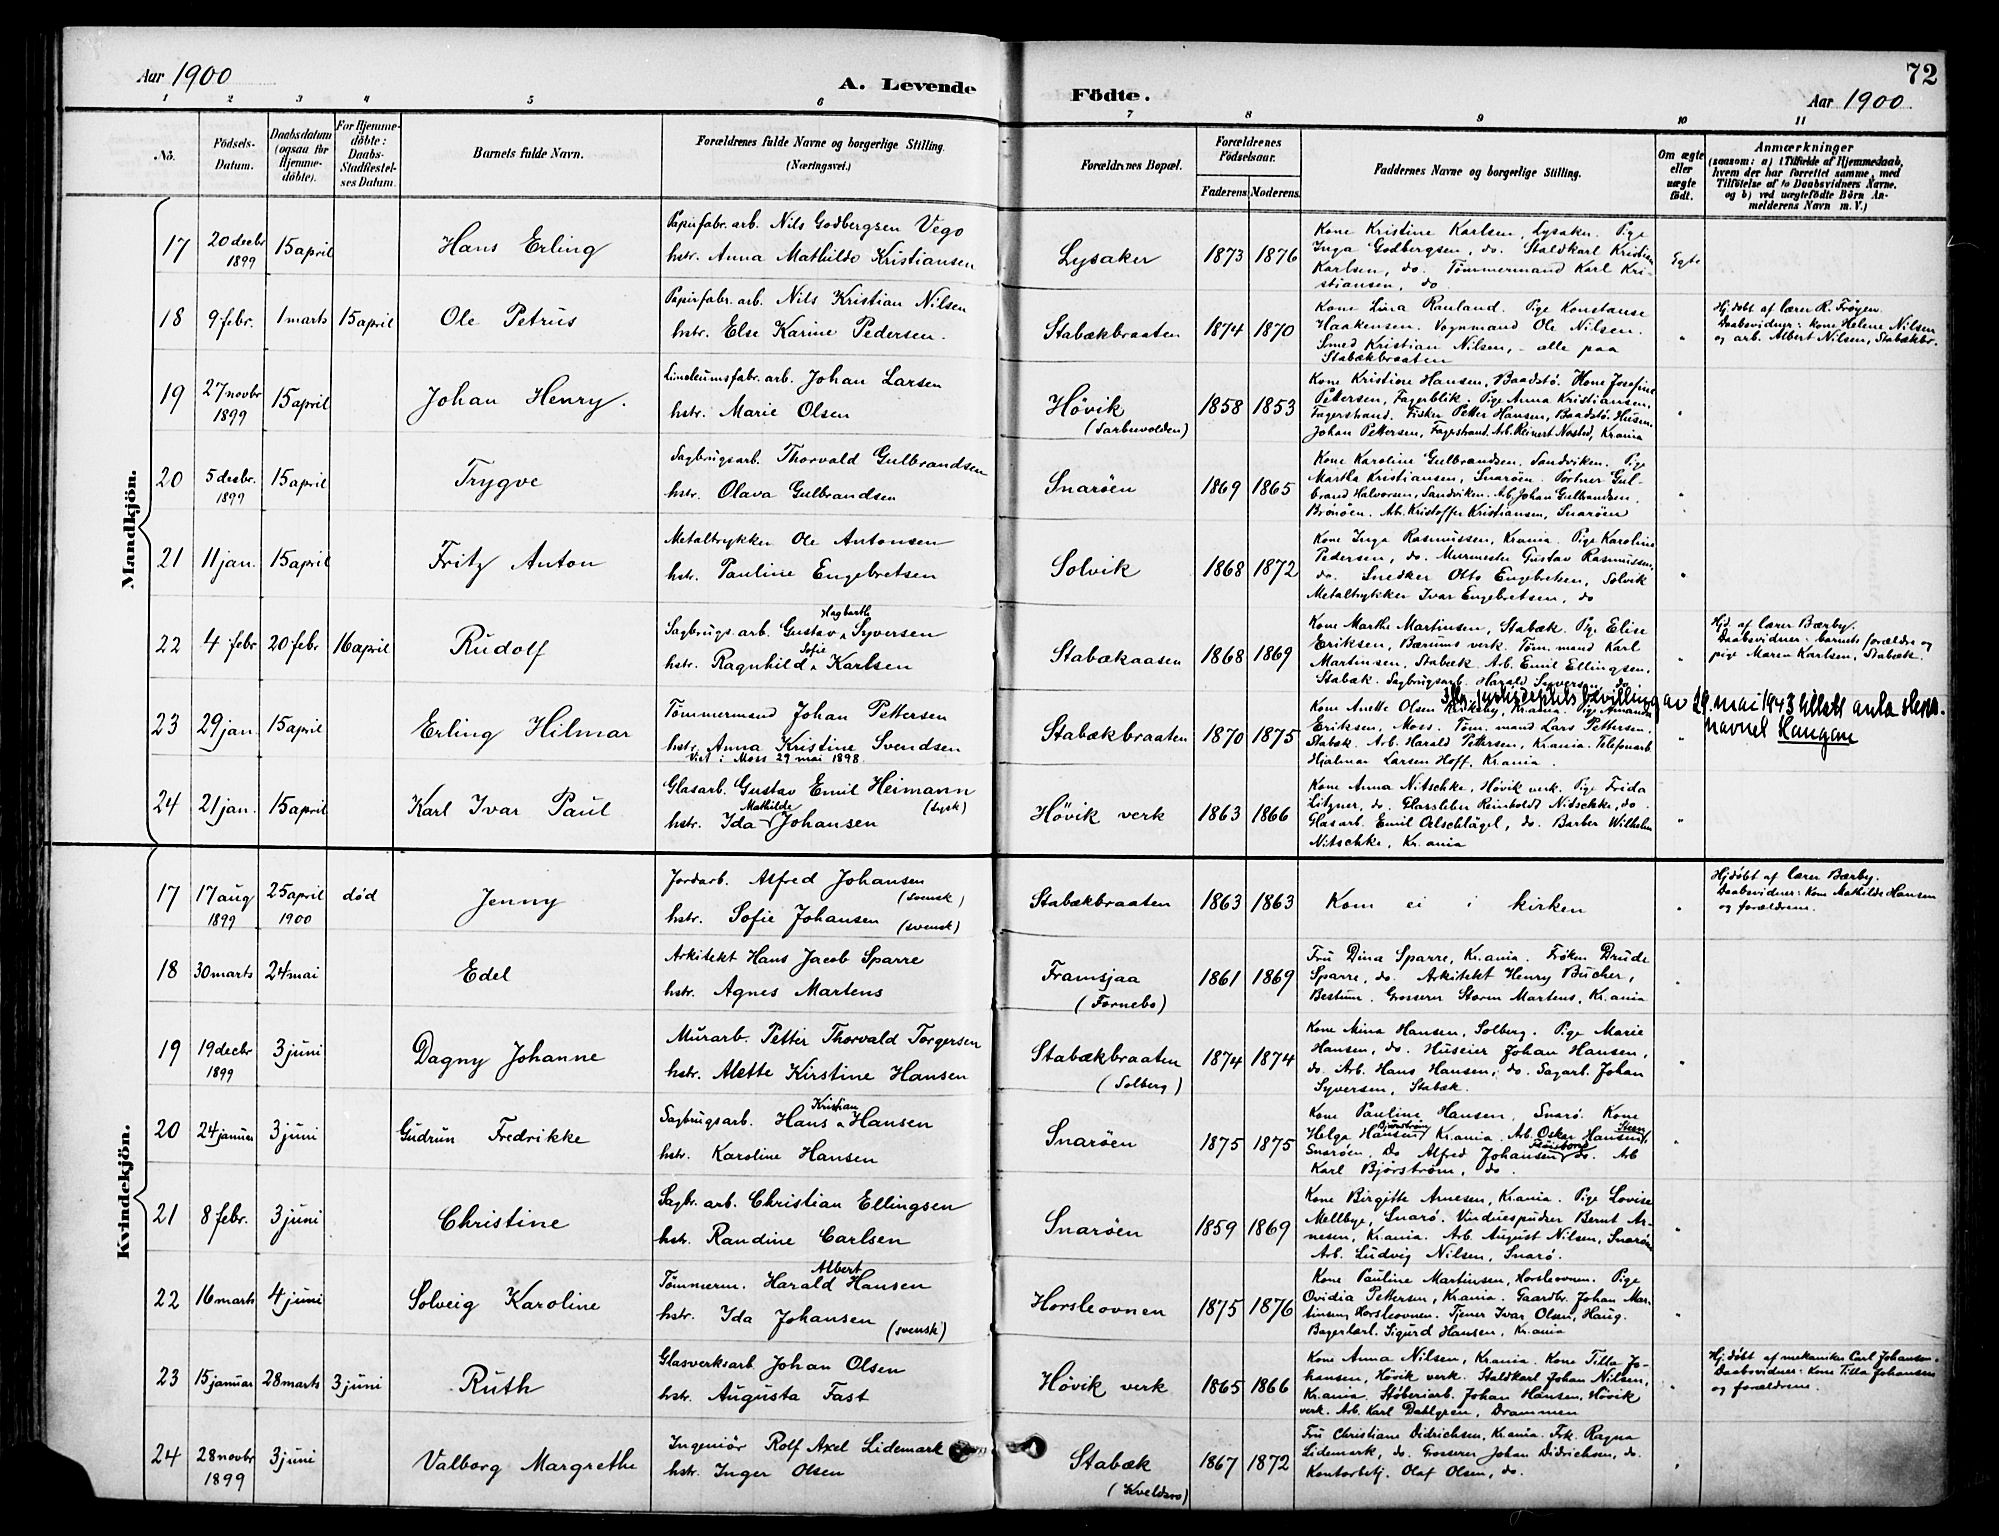 Aar 1900
A. Levende
Födte.
72
Aar 1900.
1 2 3 4 5 6 7 8 9 10 11
No. Födsels-Datum. Daabsdatum (ogsaa for Hjemmedöbte). For Hjemmedöbte: Daabs-Stadfæstelses Datum. Barnets fulde Navn. Forældrenes fulde Navne og borgerlige Stilling. (Næringsvei.) Forældrenes Bopæl. Forældrenes Födselsaar. Faderens. Moderens. Faddernes Navne og borgerlige Stilling. Om ægte eller uægte födt. Anmærkninger
(saasom: a) i Tilfælde af Hjemmedaab,
hvem der har forrettet samme, med
Tilföielse af to Daabsvidners Navne.
og b) ved uægtefödte Börn Anmelderens Navn m. V.)
Mandkjön.
17 20 decbr 1899 15 april Hans Erling
Papirfabr. arb. Nils Godbergsen Vego
hstr. Anna Mathilde Kristiansen
Lysaker 1873 1876
Kone Kristine Karlsen, Lysaker. Pige
Inga Godbergsen, do. Staldkarl Kristian
Karlsen, do. Tömmermand Karl Kri-
stiansen, do.
Egte
18 9 febr. 1 marts 15 april Ole Petrus
Papirfabr. arb. Nils Kristian Nilsen
hstr. Else Karine Pedersen.
Stabækbraaten 1874 1870
Kone Lina Rauland. Pige Konstanse
Haakensen. Vognmand Ole Nilsen.
Smed Kristian Nilsen, - alle paa
Stabækbraaten
"
Hj. döbt af lærer R. Frøyen
Daabsvidner: kone Helene Nilsen
og arb. Albert Nilsen, Stabækbr.
19 27 novbr 1899 15 april Johan Henry.
Linoleumsfabr. arb. Johan Larsen
hstr. Marie Olsen
Høvik
(Sarbuvolden)
1858 1853
Kone Kristine Hansen, Baadstø. Kone Josefine
Pettersen, Fagerblik. Pige Anna Kristiansen,
Fagerstrand. Fisker Petter Hansen, Baadstø. Husm.
Johan Pettersen, Fagerstrand. Arb. Reinert Nasted, Krania
"
20 5 decbr. 1899 15 april Trygve
Sagbrugsarb. Thorvald Gulbrandsen
hstr. Olava Gulbrandsen
Snarøen 1869 1865
Kone Karoline Gulbrandsen. Sandviken. Pige
Martha Kristiansen, Snarøen. Portner Gul-
brand Halvorsen, Sandviken. Arb. Johan Gulbrandsen.
Brønøen. Arb. Kristoffer Kristiansen, Snarøen
"
21 11 jan. 15 april Fritz Anton
Metaltrykker Ole Antonsen
hstr. Pauline Engebretsen
Solvik 1868 1872
Kone Inga Rasmussen, Krania. Pige Karoline
Pedersen, do. Murmester Gustav Rasmussen,
do. Snedker Otto Engebretsen, Solvik
Metaltrykker Ivar Engebretsen, do
"
22 4 febr 20 febr 16 april Rudolf
Hagbarth
Sagbrugs. arb. Gustav Syversen
Sofie
hstr. Ragnhild Karlsen
Stabækaasen 1868 1869
Kone Marthe Martinsen, Stabæk. Pige Elise
Eriksen, Bærums verk. Töm. mand Karl
Martinsen, Stabæk. Arb. Emil Ellingsen,
Stabæk. Sagbrugsarb. Harald Syversen, do
"
Hjd. af lærer Bærby.
Daabsvidner: barnets forældre og
pige Maren Karlsen, Stabæk.
23 29 jan. 15 april Erling Hilmar
Tömmermand Johan Pettersen
hstr. Anna Kristine Svendsen
Viet i Moss 29 mai 1898.
Stabækbraaten 1870 1875
Kone Anette Olsen, Krania. Pige Amanda
Eriksen, Moss. Töm. mand Lars Pettersen.
Stabæk. Arb. Harald Pettersen, Krania. Telefonarb
Hjalmar Larsen Hoff, Krania.
"
bevilling av 29. mai 1943 tillatt anta slekts-
navnet Haugan
24 21 jan. 15 april Karl Ivar Paul
Glasarb. Gustav Emil Heimann
(tysk)
Mathilde
hstr. Ida Johansen
Høvik verk 1863 1866
Kone Anna Nitschke, Høvik verk. Pige Frida
Litzner, do. Glassleber Reinholdt Nitschke, do.
Glasarb. Emil Oelschlägel, do. Barber Wilhelm
Nitschke, Kr.ania
"
Kvindekjön.
17 17 aug 1899 25 april 1900 død Jenny
Jordarb. Alfred Johansen
(svensk)
hstr. Sofie Johansen (svensk)
Stabækbraaten 1863 1863
Kom ei i kirken
"
Hjdöbt af lærer Bærby.
Daabsvidner: Kone Mathilde Hansen
og forældrene.
18 30 marts 24 mai Edel
Arkitekt Hans Jacob Sparre
hstr. Agnes Martens
Framsjaa
(Fornebo)
1861 1869
Fru Dina Sparre, Kr.ania. Frøken Drude
Sparre, do. Arkitekt Henry Bucher,
Bestum. Grosserer Storm Martens, Kr.ania
"
19 19 decbr 1899 3 juni Dagny Johanne
Murarb. Petter Thorvald Torgersen
hstr. Alette Kirstine Hansen
Stabækbraaten
(Solberg)
1874 1874
Kone Mina Hansen, Solberg. Pige Marie
Hansen, do. Huseier Johan Hansen,
do. Arb. Hans Hansen, do. Sagarb. Johan
Syversen, Stabæk.
"
20 24 januar 3 juni Gudrun Fredrikke
Kristian
Sagbrugsarb. Hans Hansen
hstr. Karoline Hansen
Snarøen 1875 1875
Kone Pauline Hansen, Snarø. Kone
Helga Hansen Bjørstrøm, Kr.ania. Arb. Oskar Hansen Steen,
Snarøen, Do Alfred Johansen do. Arb
Karl Bjørstrøm, do.
21 8 febr. 3 juni Christine
Sagbr. arb. Christian Ellingsen
hstr. Randine Carlsen
Snarøen 1859 1869
Kone Birgitte Arnesen, Kr.ania. Pige Lovise
Mellbye, Snarø. Vinduespudser Bernt Ar-
nesen, Kr.ania. Arb. August Nilsen, Snarøen
Arb. Ludvig Nilsen, Snarø.
"
22 16 marts 4 juni Solveig Karoline
Albert
Tömmerm. Harald Hansen
hstr. Ida Johansen (svensk)
Horsleovnen 1875 1876
Kone Pauline Martinsen, Horsleovnen. Pige
Ovidia Pettersen, Kr.ania. Gaardbr. Johan Mar-
tinsen, Horsleovnen. Tjener Ivar Olsen, Haug.
Bagerlærl. Sigurd Hansen, Kr.ania
"
23 15 januar 28 marts 3 juni Ruth
Glasverksarb. Johan Olsen
hstr. Augusta Fast
Høvik verk 1865 1866
Kone Anna Nilsen, Kr.ania. Kone Tilla Jo-
hansen, Høvik verk. Staldkarl Johan Nilsen,
Kr.ania. Støberiarb. Johan Hansen, Høvik
verk. Arb. Karl Dahlgren, Drammen
"
Hj. döbt af mekaniker Carl Johansen.
Daabsvidner: Kone Tilla Johansen
og forældrene.
24 28 novbr 1899 3 juni Valborg Margrethe
Ingeniör Rolf Axel Lidemark
hstr. Inger Olsen
Stabæk
(Kveldsro)
1867 1872
Fru Christiane Didrichsen, Kr.ania. Frk. Ragna
Lidemark, do. Grosserer Johan Didrichsen, do.
Kontorbetj. Olaf Olsen, do.
"